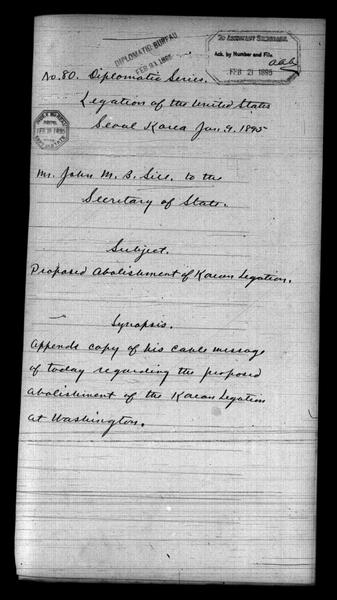 DIPLOMATIC BUREAU
FEB 21 1895
To ASSISTANT SECRETARY,
Ack. by Number and File.
FEB 21 1895
No. 80. Diplomatic Series.
Legation of the United States
Seoul Korea Jan. 9. 1895
Mr. John M. B. Sill. to the
Secretary of State.
Subject.
Proposed Abolishment of Korean Legation.
Synopsis.
Appends copy of his cable message
of today regarding the proposed
abolishment of the Korean Legation
at Washington.